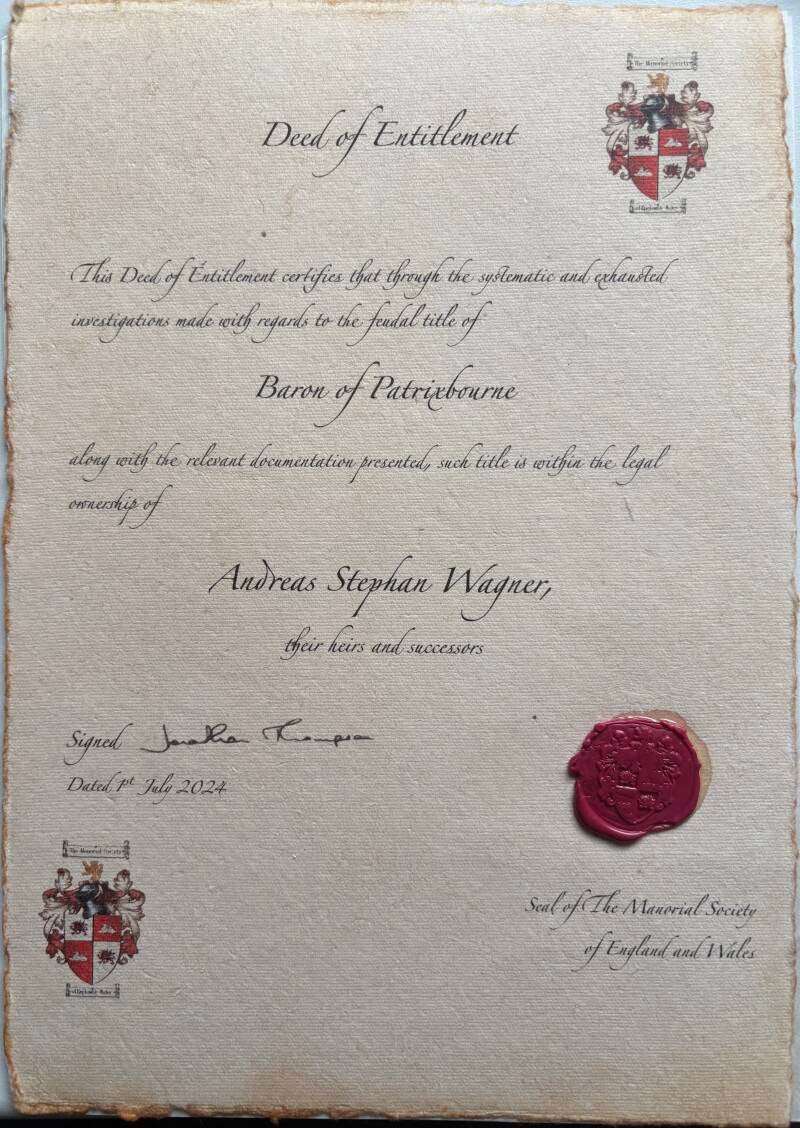 The Manorial Society
Deed of Entitlement
of England & Wales
This Deed of Entitlement certifies that through the systematic and exhausted
investigations made with regards to the feudal title of
Baron of Patrixbourne
along with the relevant documentation presented, such title is within the legal
ownership of
Andreas Stephan Wagner,
their heirs and successors
Signed Jonathan Thompson
Dated 1st July 2024
The Manorial Society
Seal of The Manorial Society
of England and Wales
of England & Wales